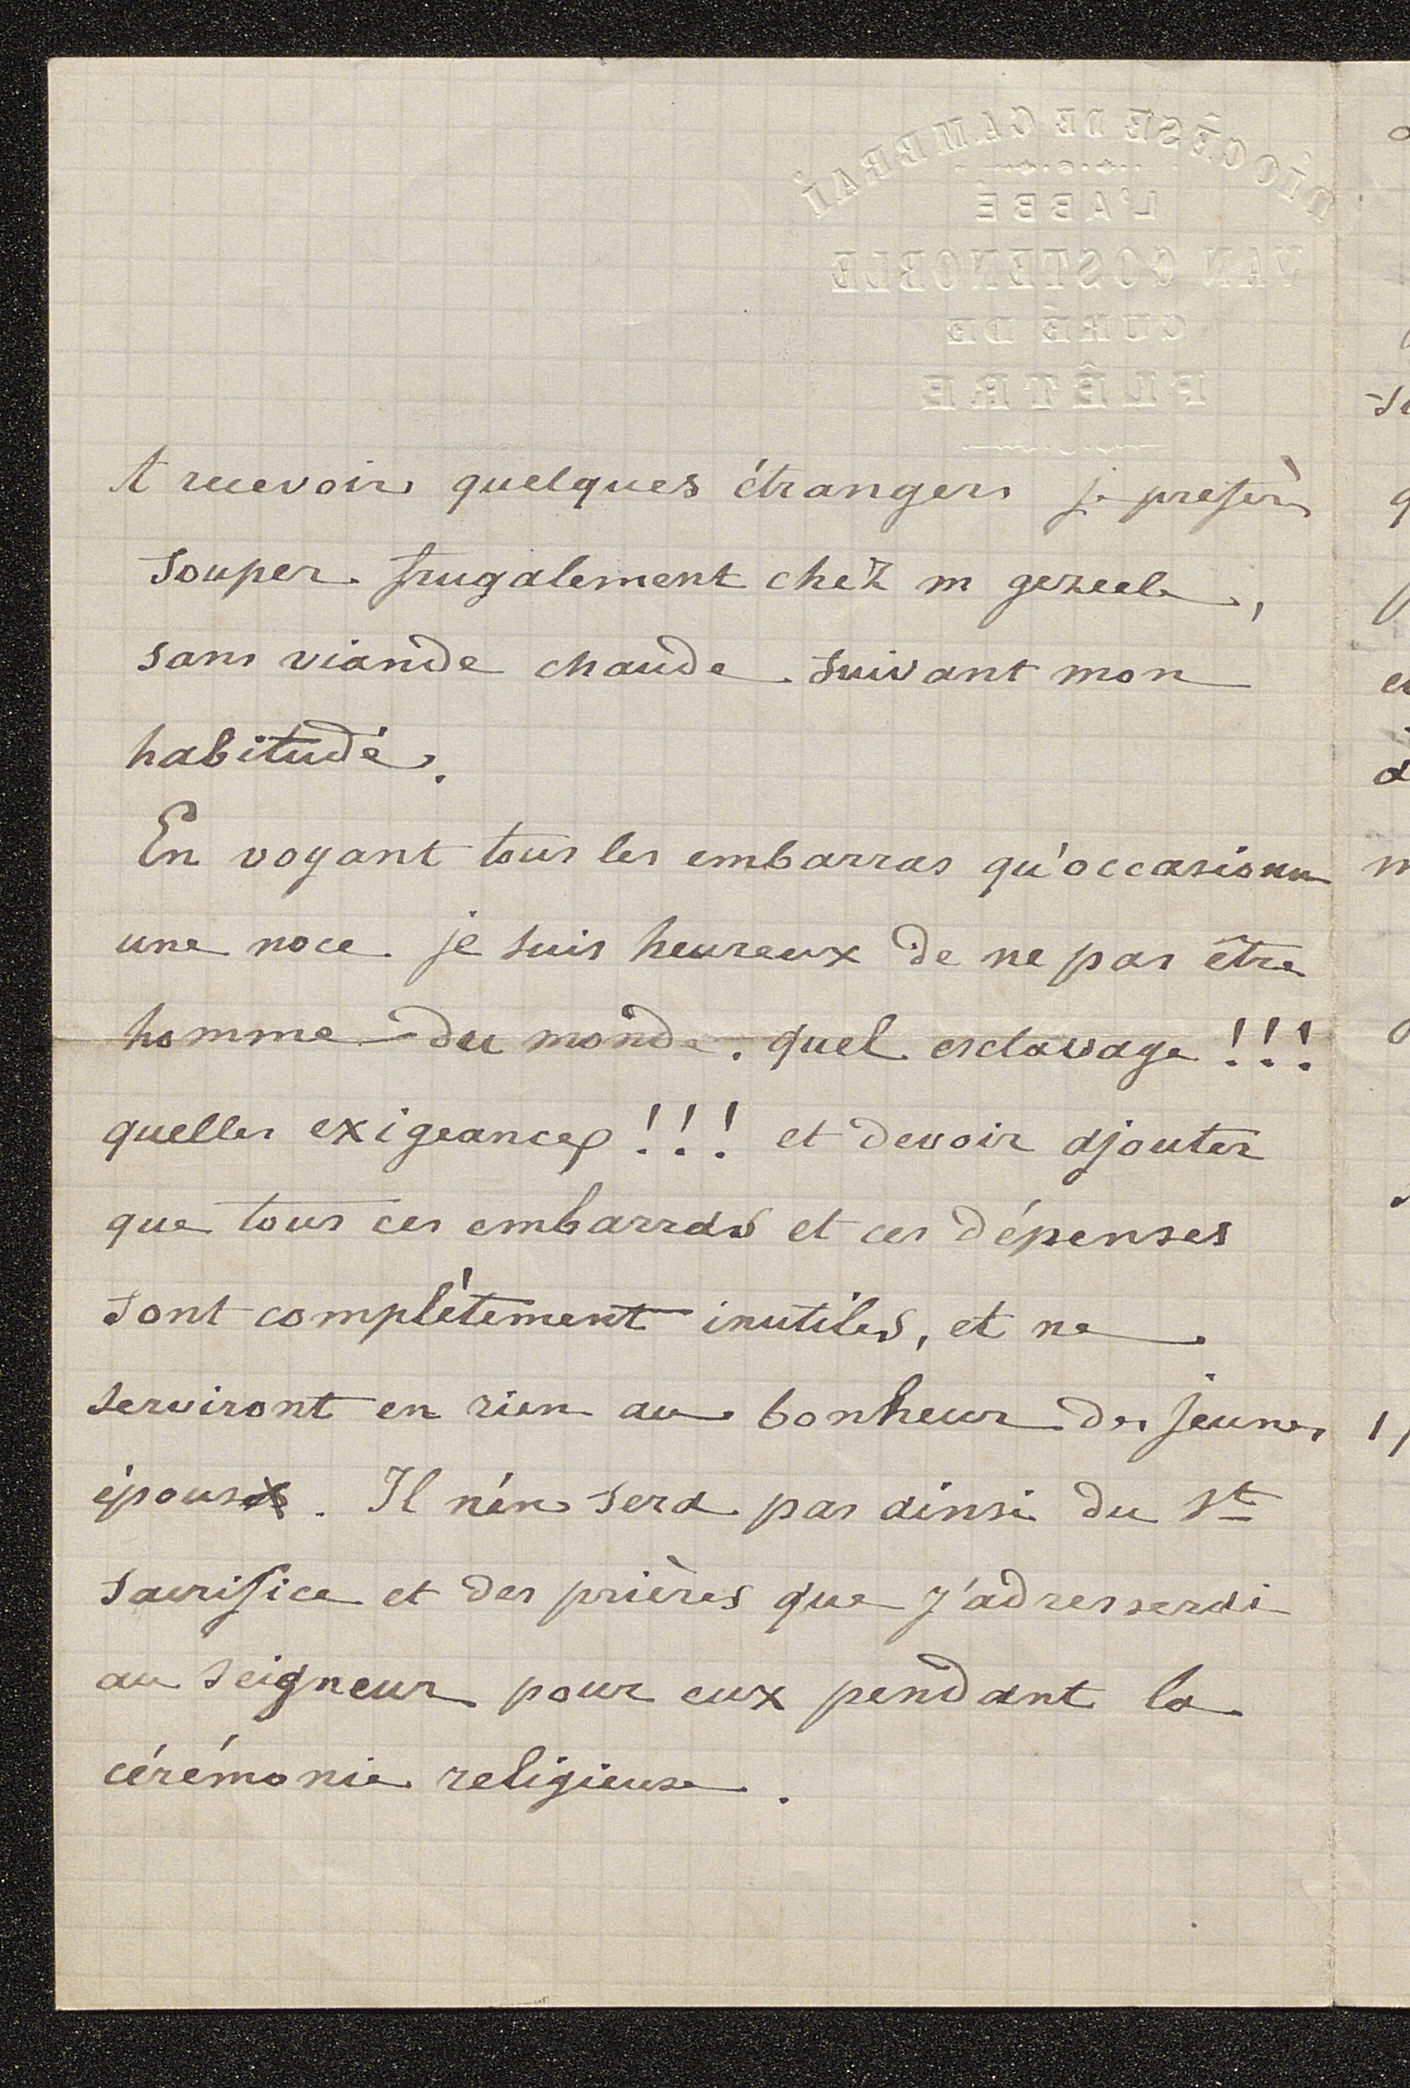 DIOCÈSE DE CAMBRAI
L'ABBÉ
VAN COSTENOBLE
CURÉ DE
FLÊTRE
A recevoir quelques étrangers je prefère
souper frugalement chez m gezelle,
sans viande chaude suivant mon
habitude.
En voyant tous les embarras qu'occasionne
une noce je suis heureux de ne pas être
homme du monde. quel esclavage !!!
quelles exigeances !!! et devoir ajouter
que tous ces embarras et ces dépenses
sont complètement inutiles, et ne
serviront en rien au bonheur des jeunes
époux. Il n'en sera pas ainsi du St
sacrifice et des prières que j'adresserai
au Seigneur pour eux pendant la
cérémonie religieuse.